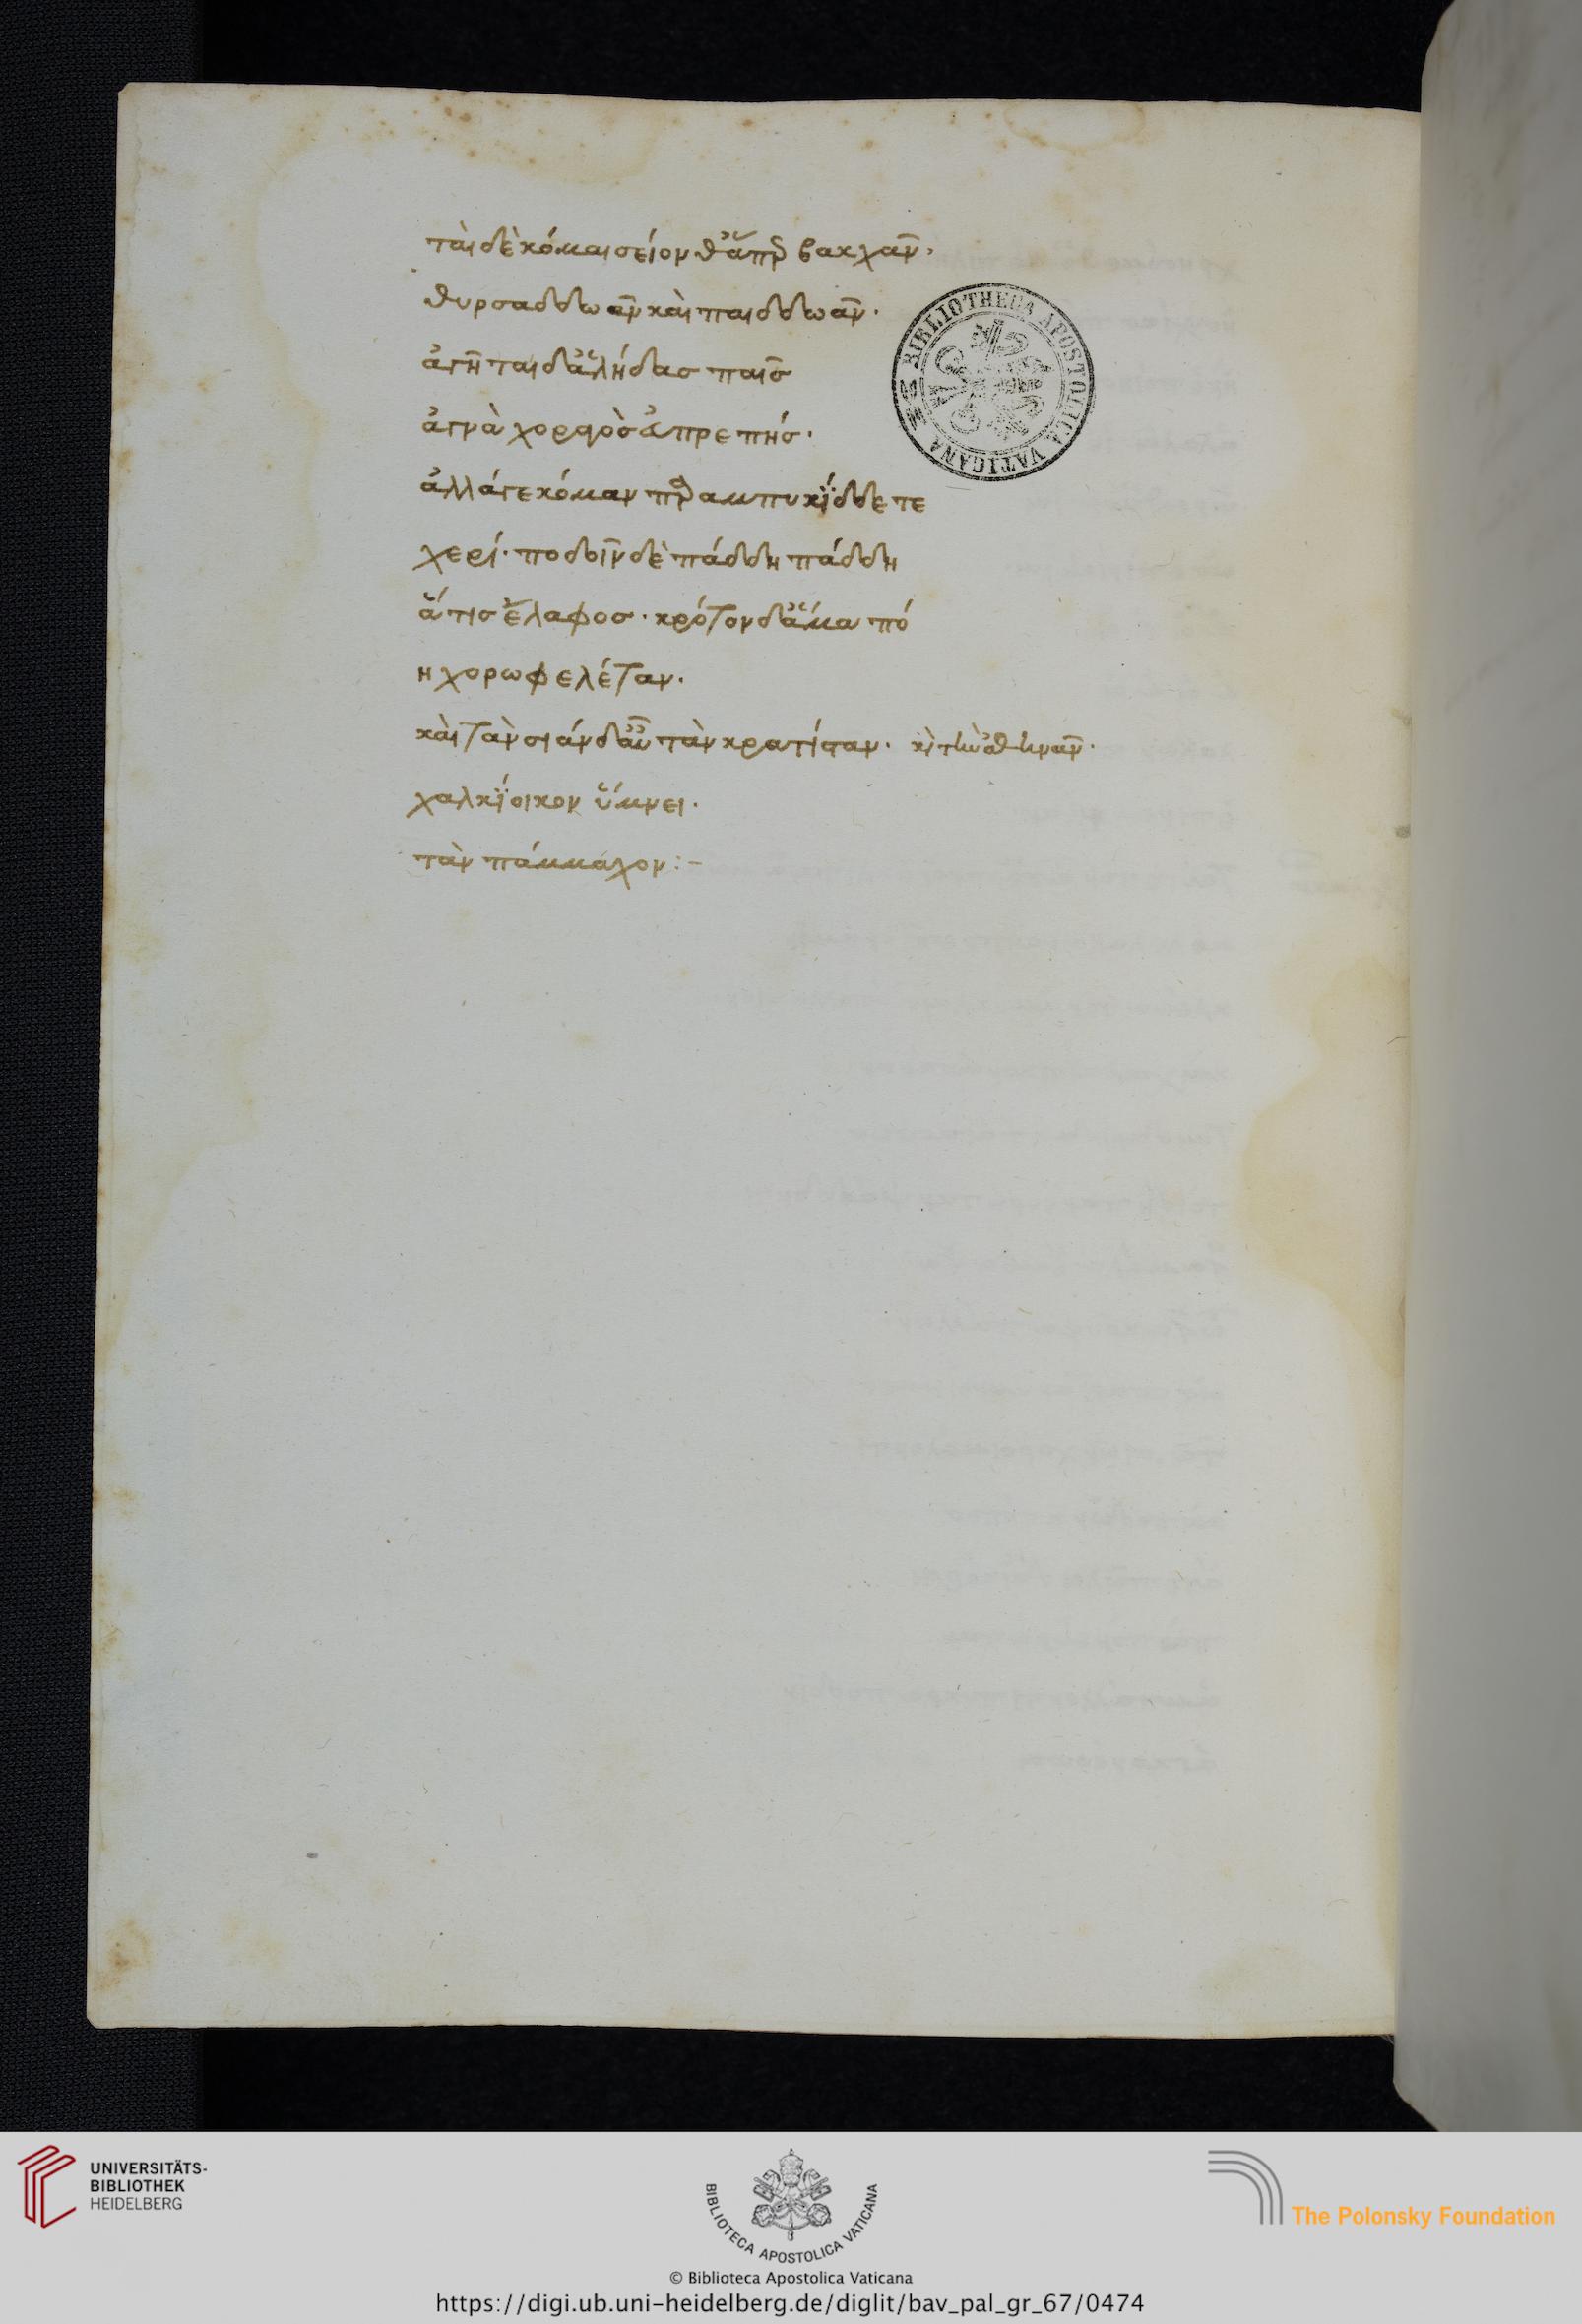 ταὶ δὲ κόμαι σείονθ ἅπερ βακχᾶν,
θυρσαδδωᾶν καὶ παιδδωᾶν.
ἁγῆται δ ἁ λήδας παῖς
ἁγνὰ χοραγὸς εὐπρεπής.
ἀλλάγε κόμαν παραμπυκίδδετε
χερί. ποδοῖν δὲ πάδδη πάδδη
ἅτις ἔλαφος. κρότον δ ἅμα πό
η χορωφελέταν.
καὶ τὰν σιάν δ αὖ τὰν κρατίσταν. καὶ τὴν ἀθηνᾶν.
χαλκίοικον ὕμνει.
τὰν πάμμαχον:-
BIBLIOTHECA APOSTOLICA VATICANA
UNIVERSITÄTS-
BIBLIOTHEK
HEIDELBERG
BIBLIOTECA APOSTOLICA VATICANA
The Polonsky Foundation
© Biblioteca Apostolica Vaticana
https://digi.ub.uni-heidelberg.de/diglit/bav_pal_gr_67/0474